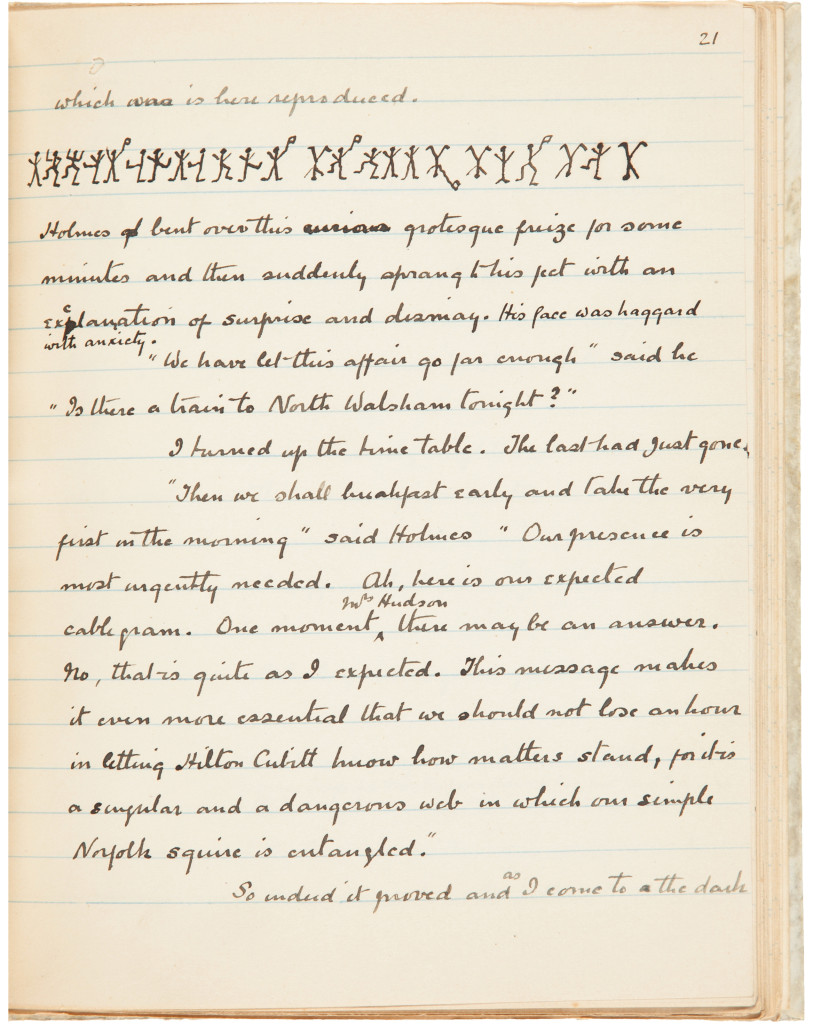 21
which was is here reproduced.
Holmes bent over this curious grotesque freize for some
minutes and then suddenly sprang to his feet with an
exclamation of surprise and dismay. His face was haggard
with anxiety.
"We have let this affair go far enough" said he
"Is there a train to North Walsham tonight?"
I turned up the time table. The last had just gone.
"Then we shall breakfast early and take the very
first in the morning" said Holmes "Our presence is
most urgently needed. Ah, here is our expected
Mrs Hudson
cablegram. One moment ^ there may be an answer.
No, that is quite as I expected. This message makes
it even more essential that we should not lose an hour
in letting Hilton Cubitt know how matters stand, for it is
a singular and a dangerous web in which our simple
Norfolk squire is entangled."
as
So indeed it proved and I come to a the dark